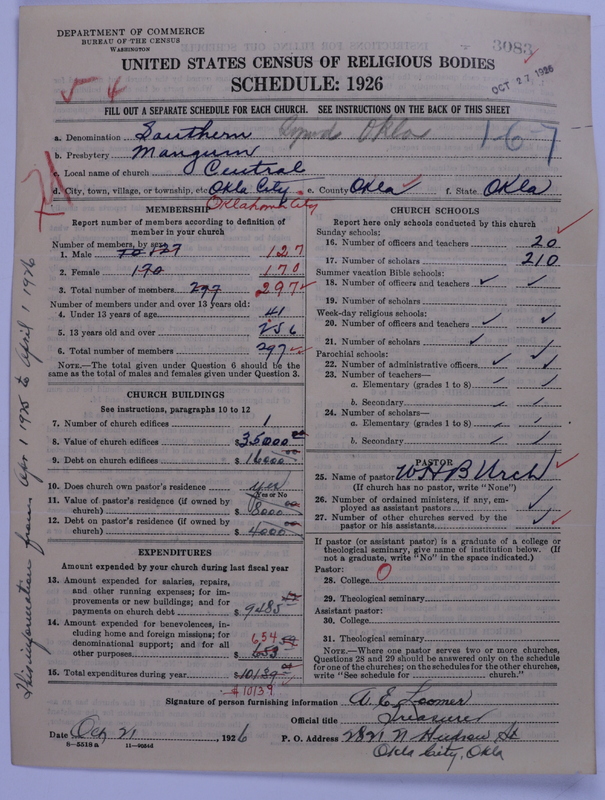 DEPARTMENT OF COMMERCE
BUREAU OF THE CENSUS
WASHINGTON
3083
UNITED STATES CENSUS OF RELIGIOUS BODIES
OCT 27 1926
SCHEDULE: 1926
5 4
FILL OUT A SEPARATE SCHEDULE FOR EACH CHURCH. SEE INSTRUCTIONS ON THE BACK OF THIS SHEET
a. Denomination Southern Synod Okla 1-6-7
b. Presbytery Mangum
c. Local name of church Central
d. City, town, village, or township, etc Okla City e. County Okla f. State Okla
Oklahoma City
MEMBERSHIP
Report number of members according to definition of
member in your church
Number of members, by sex:
1. Male 127 127
2. Female 170 170
3. Total number of members 297 297
Number of members under and over 13 years old:
4. Under 13 years of age 41
5. 13 years old and over 256
6. Total number of members 297
NOTE.—The total given under Question 6 should be the
same as the total of males and females given under Question 3.
CHURCH BUILDINGS
See instructions, paragraphs 10 to 12
7. Number of church edifices 1
8. Value of church edifices $35000 00
9. Debt on church edifices $16000 00
10. Does church own pastor's residence yes
(Yes or No)
11. Value of pastor's residence (if owned by
church) $8000 00
12. Debt on pastor's residence (if owned by
church) $4000 00
EXPENDITURES
Amount expended by your church during last fiscal year
13. Amount expended for salaries, repairs,
and other running expenses; for im-
provements or new buildings; and for
payments on church debt $9485
14. Amount expended for benevolences, in-
cluding home and foreign missions; for
denominational support; and for all
other purposes 654 $653
15. Total expenditures during year $10139
$10139
CHURCH SCHOOLS
Report here only schools conducted by this church
Sunday schools:
16. Number of officers and teachers 20
17. Number of scholars 210
Summer vacation Bible schools:
18. Number of officers and teachers
19. Number of scholars
Week-day religious schools:
20. Number of officers and teachers
21. Number of scholars
Parochial schools:
22. Number of administrative officers
23. Number of teachers—
a. Elementary (grades 1 to 8)
b. Secondary
24. Number of scholars—
a. Elementary (grades 1 to 8)
b. Secondary
PASTOR
25. Name of pastor
(If church has no pastor, write "None")
26. Number of ordained ministers, if any, em-
ployed as assistant pastors
27. Number of other churches served by the
pastor or his assistants
If pastor (or assistant pastor) is a graduate of a college or
theological seminary, give name of institution below. (If
not a graduate, write "No" in the space indicated.)
Pastor:
28. College 0
29. Theological seminary
Assistant pastor:
30. College
31. Theological seminary
NOTE.—Where one pastor serves two or more churches,
Questions 28 and 29 should be answered only on the schedule
for one of the churches; on the schedules for the other churches,
write "See schedule for church."
Signature of person furnishing information A. E. Loomer
Official title Treasurer
Date Oct 21, 1926 P. O. Address 2821 N Hudson St
Okla City, Okla
8—5518a 11—9064d
This information from Apr 1 1925 to April 1 1926